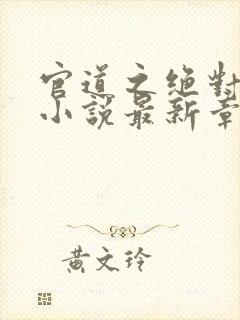 官道之绝對
小說最新章
黄文玲